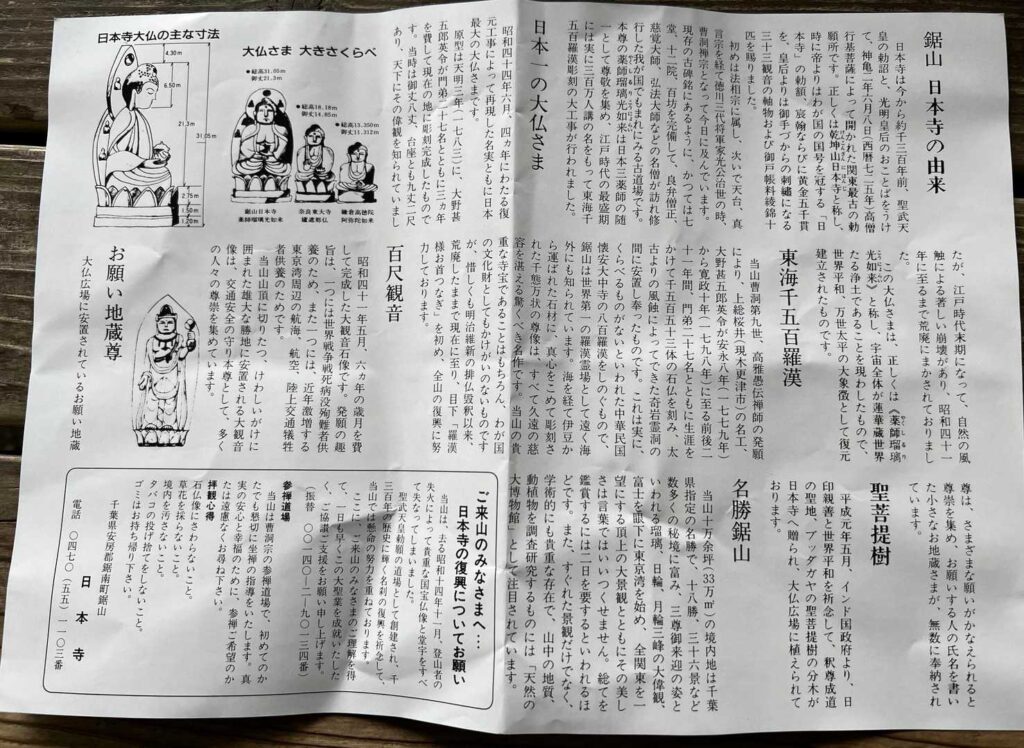 鋸山 日本寺の由来
日本寺は今から約千三百年前、聖武天
皇の勅詔と、光明皇后のおことばをうけ
て、神亀二年六月八日（西暦七二五年）高僧
行基菩薩によって開かれた関東最古の勅
願所です。正しくは乾坤山日本寺と称し、
時に帝よりはわが国の国号を冠する「日
本寺」の勅額、宸翰ならびに黄金五千貫
を、皇后よりは御手づからの刺繡になる
三十三観音の軸物および御戸帳料綾錦十
匹を賜りました。
初めは法相宗に属し、次いで天台、真
言宗を経て徳川三代将軍家光公治世の時、
曹洞禅宗となって今日に及んでいます。
現存の古碑銘にあるように、かつては七
堂、十二院、百坊を完備して、良弁僧正、
慈覚大師、弘法大師などの名僧が訪れ修
行した我が国でもまれにみる古道場です。
本尊の薬師瑠璃光如来は日本三薬師の随
一として尊敬を集め、江戸時代の最盛期
には実に三百万人講の名をもって東海千
五百羅漢彫刻の大工事が行われました。
日本一の大仏さま
昭和四十四年六月、四ヵ年にわたる復
元工事によって再現した名実ともに日本
最大の大仏さまです。
原型は天明三年（一七八三）に、大野甚
五郎英令が門弟二十七名とともに三ヵ年
を費して現在の地に彫刻完成したもので
す。当時は御丈八丈、台座とも九丈二尺
あり、天下にその偉観を知られていまし
大仏さま 大きさくらべ
●総高31.05m
御丈21.3m
●総高18.18m
御丈14.85m
●総高13.350m
御丈11.312m
鋸山日本寺
薬師瑠璃光如来
奈良東大寺
盧遮那仏
鎌倉高徳院
阿弥陀如来
日本寺大仏の主な寸法
4.30m
6.50m
21.3m
31.05m
2.75m
1.50m
1.20m
たが、江戸時代末期になって、自然の風
触による著しい崩壊があり、昭和四十一
年に至るまで荒廃にまかされておりまし
た。
この大仏さまは、正しくは《薬師瑠璃
光如来》と称し、宇宙全体が蓮華蔵世界
たる浄土であることを現わしたもので、
世界平和、万世太平の大象徴として復元
建立されたものです。
東海千五百羅漢
当山曹洞第九世、高雅愚伝禅師の発願
により、上総桜井（現木更津市）の名工、
大野甚五郎英令が安永八年（一七七九年）
から寛政十年（一七九八年）に至る前後二
十一年間、門弟二十七名とともに生涯を
かけて千五百五十三体の石仏を刻み、太
古よりの風蝕によってできた奇岩霊洞の
間に安置し奉ったものです。これは実に、
くらべるものがないといわれた中華民国
懐安大中寺の八百羅漢をしのぐもので、
鋸山は世界第一の羅漢霊場として遠く海
外にも知られています。海を経て伊豆か
ら運ばれた石材に、真心をこめて彫刻さ
れた千態万状の尊像は、すべて久遠の慈
容を湛える驚くべき名作です。当山の貴
重な寺宝であることはもちろん、わが国
の文化財としてもかけがいのないものです
が、惜しくも明治維新の排仏毀釈以来、
荒廃したままで現在に至り、目下「羅漢
様お首つなぎ」を初め、全山の復興に努
力しております。
百尺観音
昭和四十一年五月、六ヵ年の歳月を費
して完成した大観音石像です。発願の趣
旨は、一つには世界戦争戦死病歿殉難者供
養のため、また一つには、近年激増する
東京湾周辺の航海、航空、陸上交通犠牲
者供養のためです。
当山山頂に切りたつ、けわしいがけに
囲まれた雄大な勝地に安置される大観音
像は、交通安全の守り本尊として、多く
の人々の尊崇を集めています。
お願い地蔵尊
大仏広場に安置されているお願い地蔵
尊は、さまざまな願いがかなえられると
尊崇を集め、お願いする人の氏名を書い
た小さなお地蔵さまが、無数に奉納され
ています。
聖菩提樹
平成元年五月、インド国政府より、日
印親善と世界平和を祈念して、釈尊成道
の地、ブッダガヤの聖菩提樹の分木が
日本寺へ贈られ、大仏広場に植えられて
おります。
名勝鋸山
当山十万余坪（33万㎡）の境内地は千葉
県指定の名勝で、十八勝、三十六景など
数多くの秘境に富み、三尊御来迎の姿と
いわれる瑠璃、日輪、月輪三峰の大偉観、
富士を眼下に東京湾を始め、全関東を一
望にする頂上の大景観とともにその美し
さは言葉ではいいつくせません。総てを
鑑賞するには一日を要するといわれるほ
どです。また、すぐれた景観だけでなく、
学術的にも貴重な存在で、山中の地質、
動植物を調査研究するものには「天然の
大博物館」として注目されています。
ご来山のみなさまへ…
日本寺の復興についてお願い
当山は、去る昭和十四年十一月、登山者の
失火によって貴重な国宝仏像と堂宇をすべ
て失なってしまいました。
聖武天皇勅願の道場として創建され、千
三百年の歴史に輝く名刹の復興を祈念して、
当山では懸命の努力を重ねております。
ここに、ご来山のみなさまのご理解を得
て、一日も早くこの大聖業を成就いたした
く、ご協讃ご支援をお願い申し上げます。
（振替 〇〇一四〇―二―九〇一三四番）
参禅道場
当山は曹洞宗の参禅道場で、初めてのか
たでも懇切に坐禅の指導をいたします。真
実の安心と幸福のために、参禅ご希望のか
たは遠慮なくお尋ね下さい。
拝観心得
石仏像にさわらないこと。
草花を採らないこと。
境内を汚さないこと。
タバコの投げ捨てをしないこと。
ゴミはお持ち帰り下さい。
千葉県安房郡鋸南町鋸山
日本寺
電話 〇四七〇（五五）一一〇三番